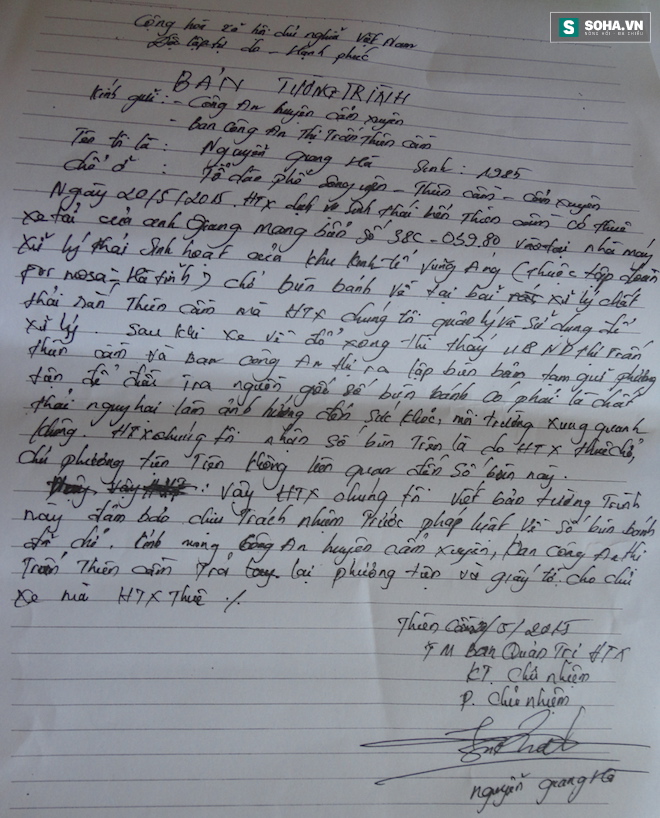 SOHA.VN
SỐNG HỎI - ĐA CHIỀU
Cộng hoà xã hội chủ nghĩa Việt Nam
Độc lập tự do - Hạnh phúc
BẢN TƯỜNG TRÌNH
Kính gửi: - Công An huyện cẩm xuyên
- Ban công An Thị Trấn Thiên cầm
Tên tôi là : Nguyễn quang Hà Sinh: 1985
chổ ở : Tổ dân phố Song yên - Thiên cầm - cẩm xuyên
Ngày 20/5/2015. HTX dịch vụ sinh thái biển Thiên cầm có thuê
xe tải của anh Giang mang biển số 38C-039.80 vào tại nhà máy
xử lý thải sinh hoạt của khu kinh tế Vũng Áng (thuộc tập đoàn
For mosa - Hà tĩnh) chở bùn banh về tại bãi xử lý chất
thải rắn Thiên cầm mà HTX chúng tôi quản lý và sử dụng để
xử lý. Sau khi xe về đổ xong thì thấy UBND thị trấn
thiên cầm và Ban công An thị ra lập biên bản tạm giữ phương
tiện để điều tra nguồn gốc số bùn bánh có phải là chất
thải nguy hại làm ảnh hưởng đến sức khoẻ, môi trường xung quanh
không. HTX chúng tôi nhận số bùn Trên là do HTX thuê chở,
chủ phương tiện Trên không liên quan đến số bùn này.
Vậy HTX chúng tôi viết bản tường Trình
này đảm bảo chịu Trách nhiệm Trước pháp luật về số bùn bánh
đã chở. kính mong Công An huyện cẩm xuyên, Ban công An thị
Trấn Thiên cầm Trả lại phương tiện và giấy tờ cho chủ
xe mà HTX Thuê ./.
Thiên Cầm /5/2015
TM Ban Quản Trị HTX
KT. Chủ nhiệm
P. chủ nhiệm
nguyễn quang Hà